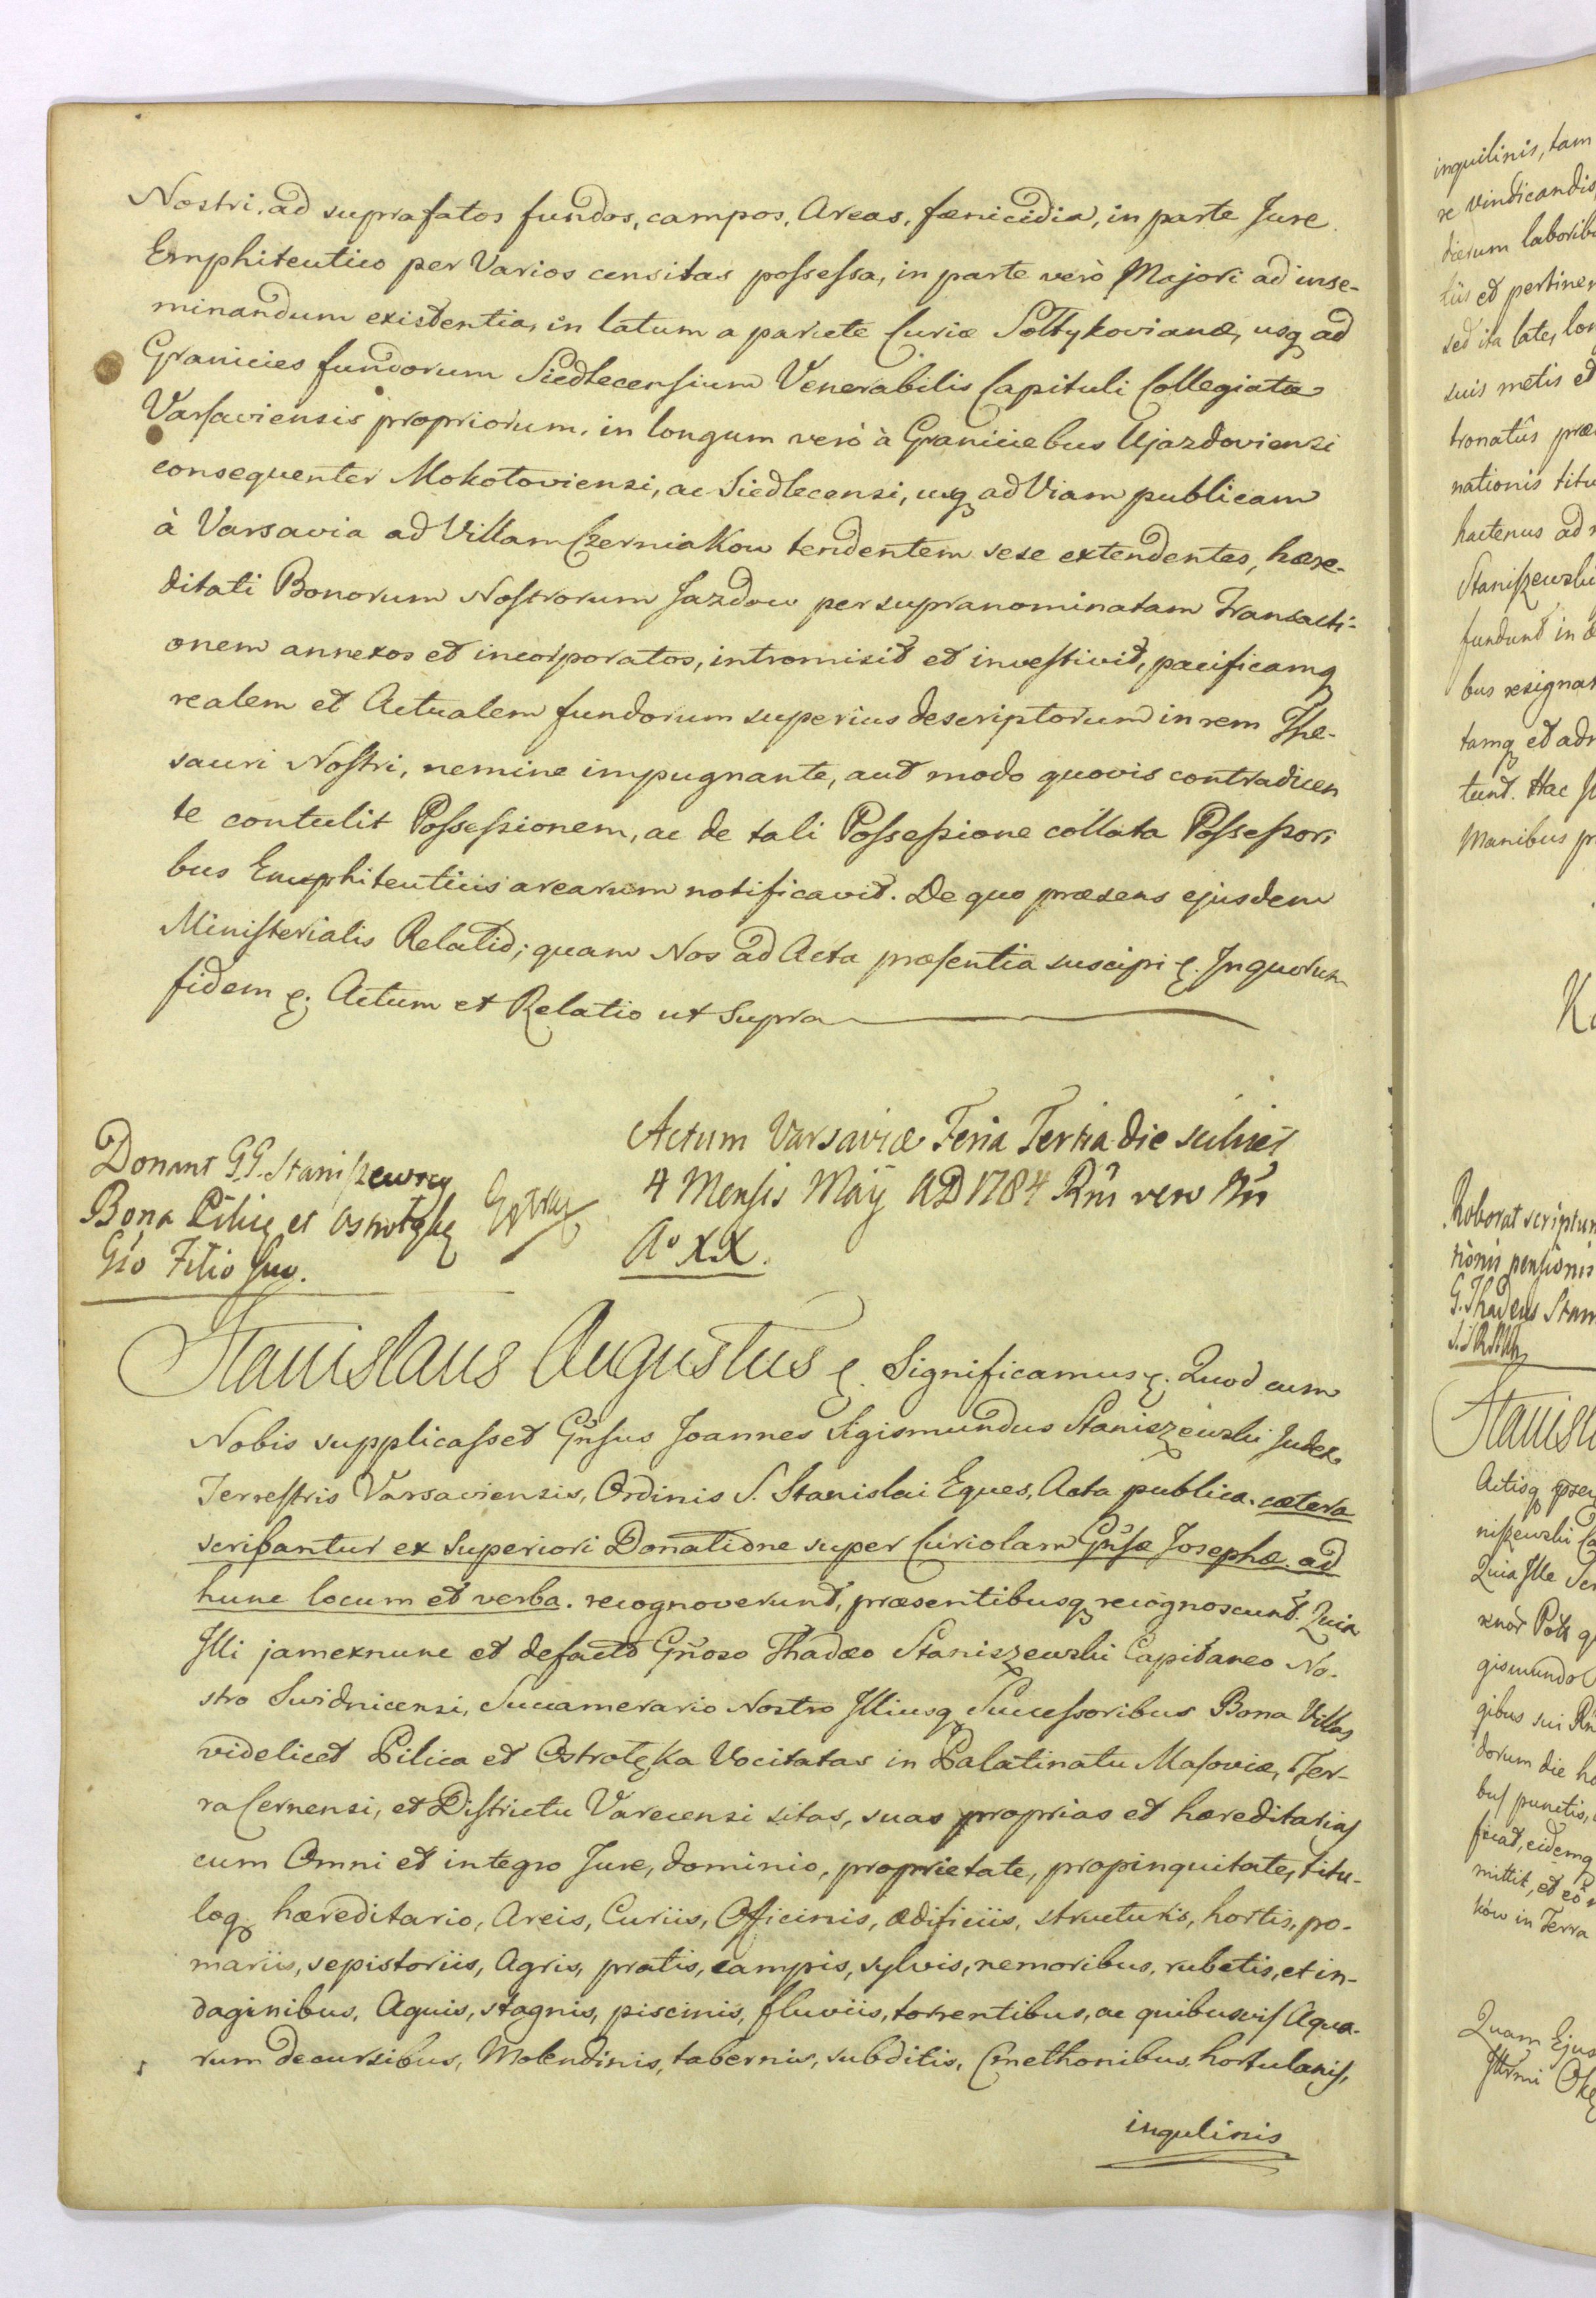 Nostri, ad suprafatos fundos, campos, Areas, fænicidia, in parte Jure
Emphiteutico per Varios censitas possessa, in parte verò Majori ad inse-
minandum existentia, in latum a pariete Curiæ Sołtykovianæ, usq ad
Granicies fundorum Siedlecensium Venerabilis Capituli Collegiatæ
Varsaviensis propriorum, in longum verò à Graniciebus Ujazdoviensi
consequenter Mokotoviensi, ac Siedlecensi, usq ad Viam publicam
à Varsavia ad Villam Czerniakow tendentem sese extendentes, hære-
ditati Bonorum Nostrorum Jazdow per supranominatam Transacti-
onem annexos et incorporatos, intromisit et investivit, pacificamq
realem et Actualem fundorum superius descriptorum in rem The-
sauri Nostri, nemine impugnante, aut modo quovis contradicen
te contulit Possessionem, ac de tali Possessione collata Possessori
bus Emphiteuticis arearum notificavit. De quo præsens ejusdem
Ministerialis Relatio; quam Nos ad Acta præsentia suscipi &. In quorum
fidem &. Actum et Relatio ut Supra
Donant GG. Staniszewscy
Bona Pilicę et Ostrołękę
Gso Filio Suo.
Actum Varsaviæ Feria Tertia die scilicet
4 Mensis Maÿ AD 1784 Rni vero Nri
Ao XX.
Stanislaus Augustus &. Significamus &. Quod cum
Nobis supplicasset Gnsus Joannes Sigismundus Staniszewski Judex
Terrestris Varsaviensis, Ordinis S. Stanislai Eques, Acta publica. cætera
scribantur ex Superiori Donatione super Curiolam Gnsæ Josephæ. ad
hunc locum et verba. recognoverunt, præsentibusq recognoscunt. Quia
Illi jam exnunc et defacto Gnoso Thadæo Staniszewski Capitaneo No-
stro Swidnicensi, Succamerario Nostro Illiusq Successoribus Bona Villas
videlicet Pilica et Ostrołęka Vocitatas in Palatinatu Masoviæ, Ter-
ra Cernensi, et Districtu Varecensi sitas, suas proprias et hæreditarias
cum Omni et integro Jure, dominio, proprietate, propinquitate, titu-
loq hæreditario, Areis, Curiis, Officinis, ædificiis, structuris, hortis, po-
mariis, sepistoriis, Agris, pratis, campis, sylvis, nemoribus, rubetis, et in-
daginibus, Aquis, stagnis, piscinis, fluviis, torrentibus, ac quibusvis Aqua-
rum decursibus, Molendinis, tabernis, subditis, Cmethonibus, hortulanis,
inqulinis
inquilinis, tam
re vindicandis
dierum laborib
tiis et pertinen
sed ita late, lon
suis metis et
tronatûs præ
nationis titu
hactenus ad
Staniszewski
fundunt in
bus resignan
tamq et adm
tunt. Hac
Manibus
Roborat scriptum
tionis pensionis
G. Thadeus Stan
Stanisl
Actisq
niszewski
Quia Ille
gismundo
gibus sui
dorum die
bus punctis,
ficat, eidemq
mittit, et
ków in Terra
Quam Ejus